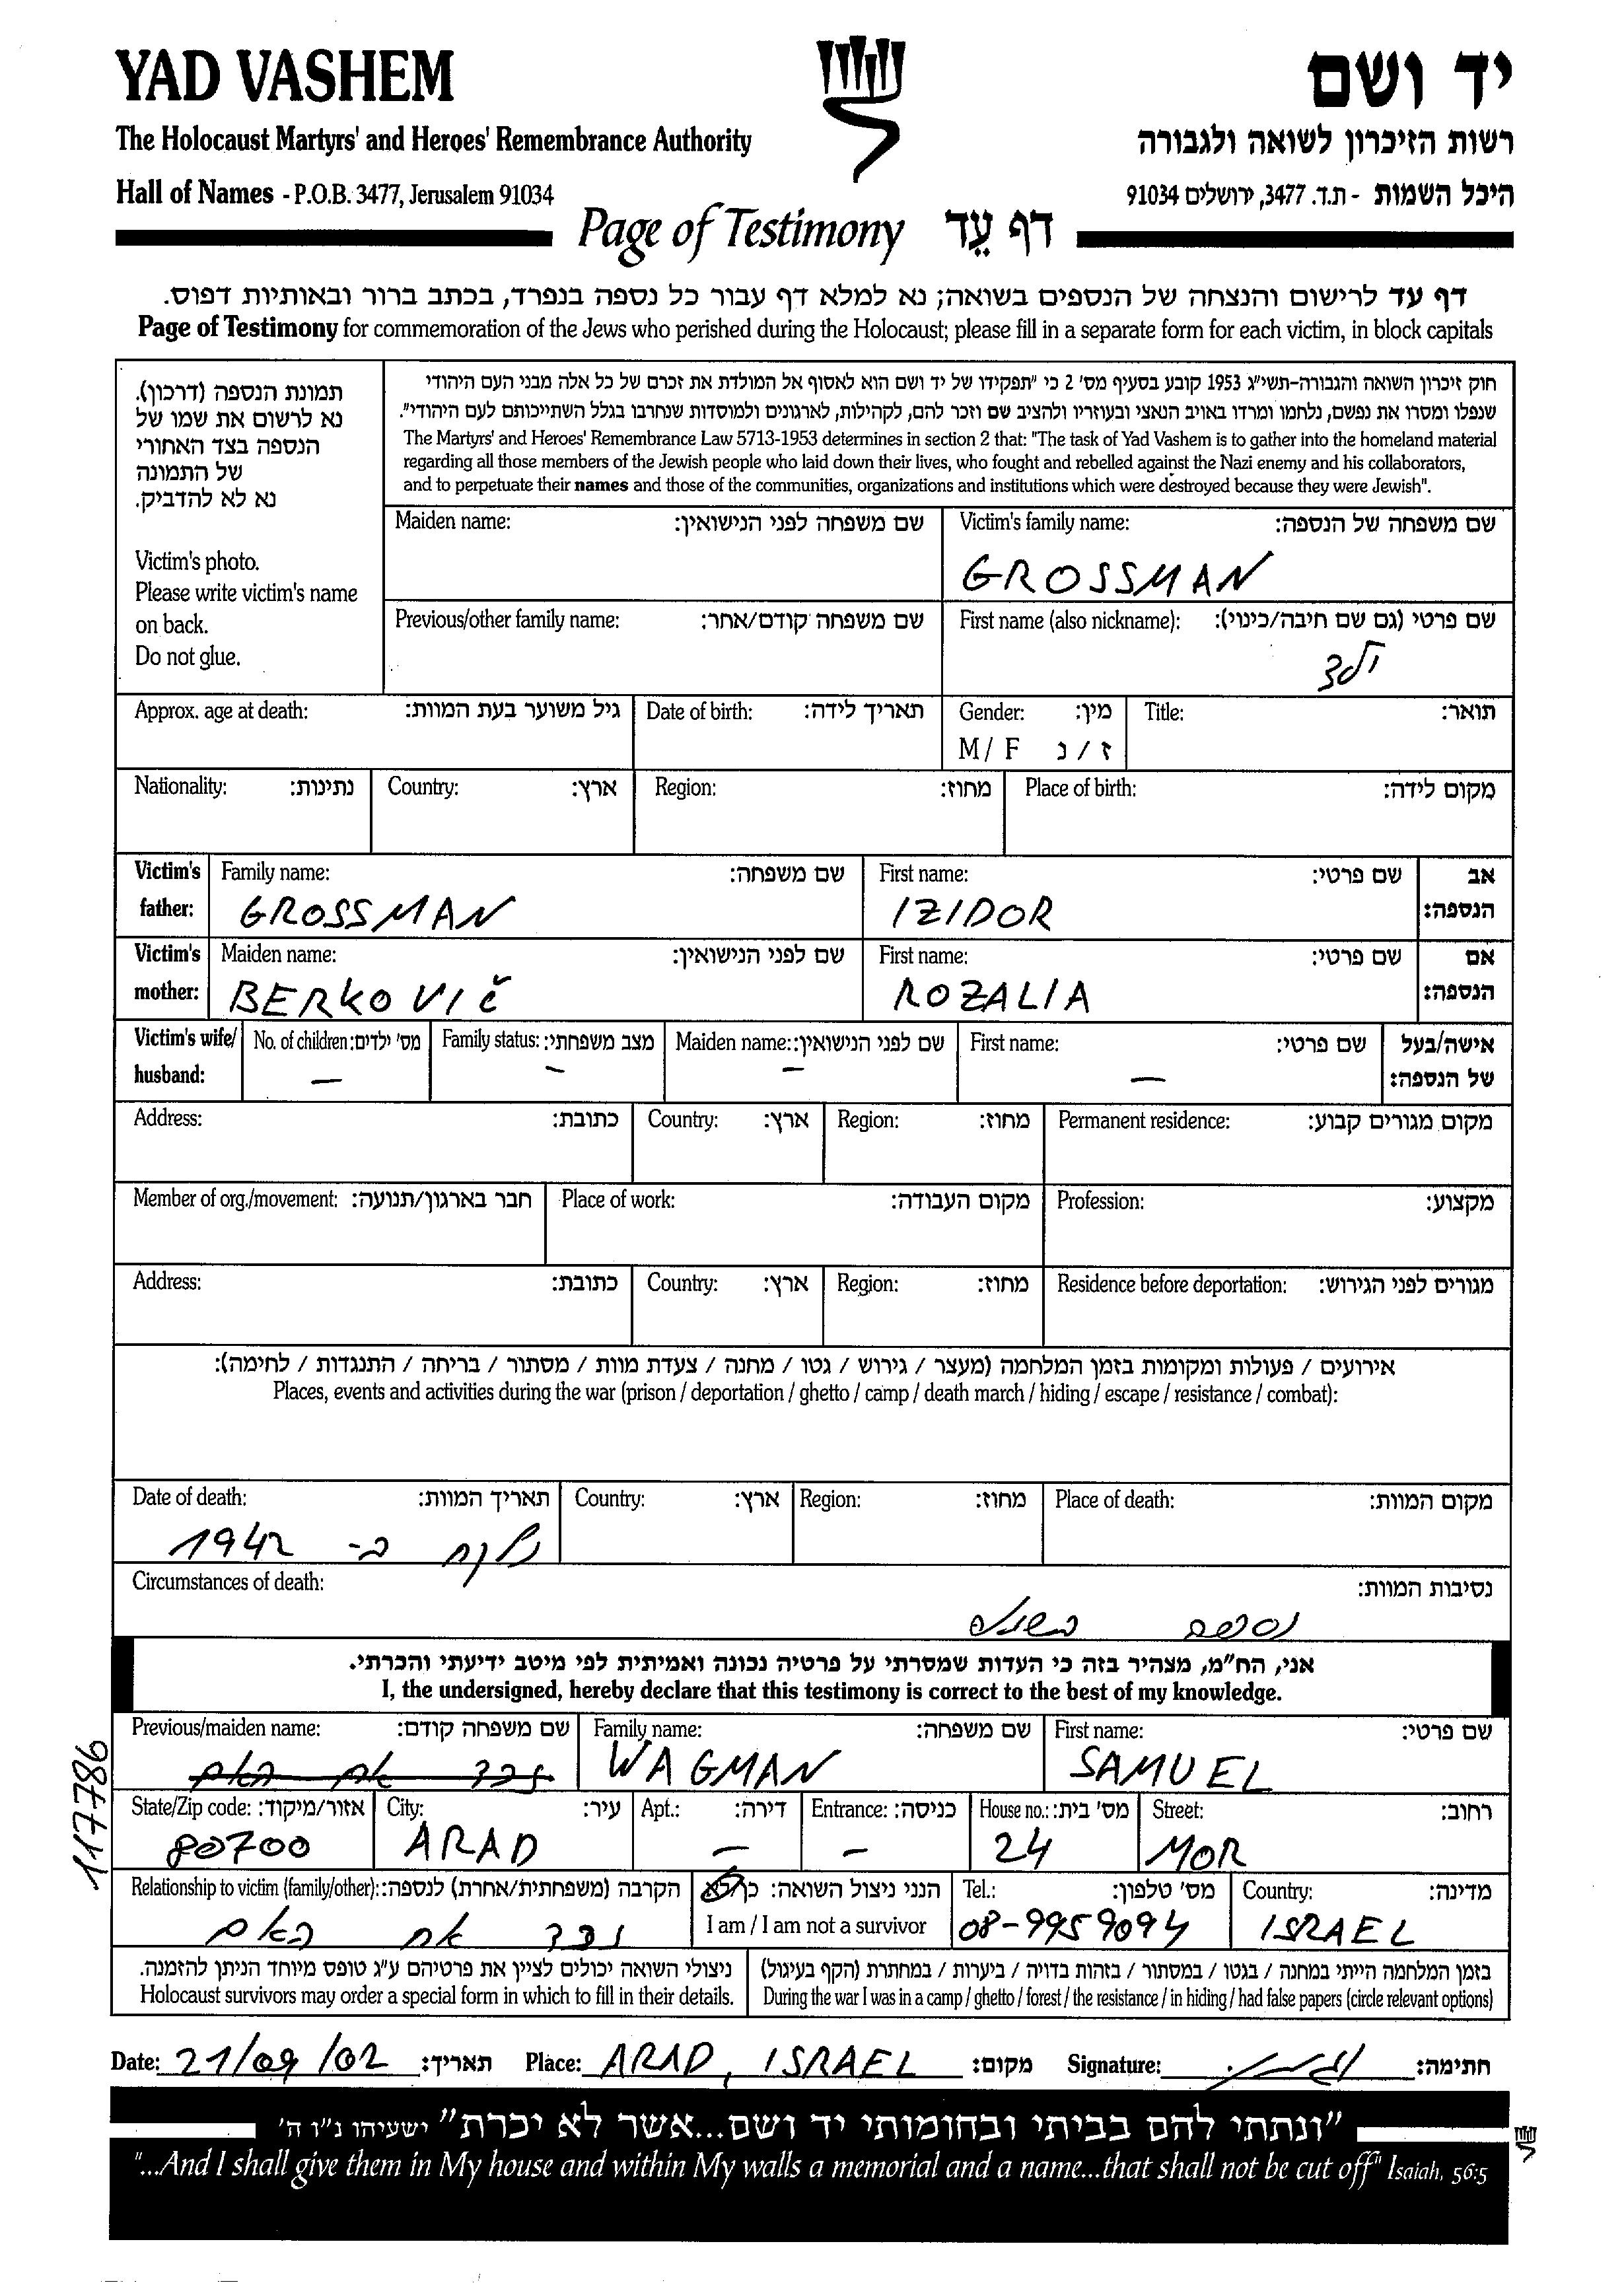 YAD VASHEM
יד ושם
The Holocaust Martyrs' and Heroes' Remembrance Authority
רשות הזיכרון לשואה ולגבורה
Hall of Names - P.O.B. 3477, Jerusalem 91034
היכל השמות - ת.ד. 3477, ירושלים 91034
Page of Testimony דף עֵד
דף עד לרישום והנצחה של הנספים בשואה; נא למלא דף עבור כל נספה בנפרד, בכתב ברור ובאותיות דפוס.
Page of Testimony for commemoration of the Jews who perished during the Holocaust; please fill in a separate form for each victim, in block capitals
תמונת הנספה (דרכון).
נא לרשום את שמו של
הנספה בצד האחורי
של התמונה
נא לא להדביק.
Victim's photo.
Please write victim's name
on back.
Do not glue.
חוק זיכרון השואה והגבורה-תשי"ג 1953 קובע בסעיף מס' 2 כי "תפקידו של יד ושם הוא לאסוף אל המולדת את זכרם של כל אלה מבני העם היהודי
שנפלו ומסרו את נפשם, נלחמו ומרדו באויב הנאצי ובעוזריו ולהציב שם וזכר להם, לקהילות, לארגונים ולמוסדות שנחרבו בגלל השתייכותם לעם היהודי".
The Martyrs' and Heroes' Remembrance Law 5713-1953 determines in section 2 that: "The task of Yad Vashem is to gather into the homeland material
regarding all those members of the Jewish people who laid down their lives, who fought and rebelled against the Nazi enemy and his collaborators,
and to perpetuate their names and those of the communities, organizations and institutions which were destroyed because they were Jewish".
Maiden name: שם משפחה לפני הנישואין: Victim's family name: שם משפחה של הנספה:
GROSSMAN
Previous/other family name: שם משפחה קודם/אחר: First name (also nickname): שם פרטי (גם שם חיבה/כינוי):
ילד
Approx. age at death: גיל משוער בעת המוות: Date of birth: תאריך לידה: Gender: מין: Title: תואר:
M / F ז / נ
Nationality: נתינות: Country: ארץ: Region: מחוז: Place of birth: מקום לידה:
Victim's father: Family name: שם משפחה: First name: שם פרטי: אב הנספה:
GROSSMAN IZIDOR
Victim's mother: Maiden name: שם לפני הנישואין: First name: שם פרטי: אם הנספה:
BERKOVIČ ROZALIA
Victim's wife/ husband: No. of children: מס' ילדים: Family status: מצב משפחתי: Maiden name: שם לפני הנישואין: First name: שם פרטי: אישה/בעל של הנספה:
– – – –
Address: כתובת: Country: ארץ: Region: מחוז: Permanent residence: מקום מגורים קבוע:
Member of org./movement: חבר בארגון/תנועה: Place of work: מקום העבודה: Profession: מקצוע:
Address: כתובת: Country: ארץ: Region: מחוז: Residence before deportation: מגורים לפני הגירוש:
אירועים / פעולות ומקומות בזמן המלחמה (מעצר / גירוש / גטו / מחנה / צעדת מוות / מסתור / בריחה / התנגדות / לחימה):
Places, events and activities during the war (prison / deportation / ghetto / camp / death march / hiding / escape / resistance / combat):
Date of death: תאריך המוות: Country: ארץ: Region: מחוז: Place of death: מקום המוות:
ב- 1942
Circumstances of death: נסיבות המוות:
נספה בשואה
אני, הח"מ, מצהיר בזה כי העדות שמסרתי על פרטיה נכונה ואמיתית לפי מיטב ידיעתי והכרתי.
I, the undersigned, hereby declare that this testimony is correct to the best of my knowledge.
Previous/maiden name: שם משפחה קודם: Family name: שם משפחה: First name: שם פרטי:
נכד אח האם WAGMAN SAMUEL
State/Zip code: אזור/מיקוד: City: עיר: Apt.: דירה: Entrance: כניסה: House no.: מס' בית: Street: רחוב:
80700 ARAD – – 24 MOR
Relationship to victim (family/other): הקרבה (משפחתית/אחרת) לנספה: הנני ניצול השואה: כן/לא Tel.: מס' טלפון: Country: מדינה:
נכד אח האם I am / I am not a survivor 08-9959094 ISRAEL
ניצולי השואה יכולים לציין את פרטיהם ע"ג טופס מיוחד הניתן להזמנה.
Holocaust survivors may order a special form in which to fill in their details.
בזמן המלחמה הייתי במחנה / בגטו / במסתור / בזהות בדויה / ביערות / במחתרת (הקף בעיגול)
During the war I was in a camp / ghetto / forest / the resistance / in hiding / had false papers (circle relevant options)
Date: 21/09/02 תאריך: Place: ARAD, ISRAEL מקום: Signature: חתימה:
"ונתתי להם בביתי ובחומותי יד ושם...אשר לא יכרת" ישעיהו נ"ו ה'
"...And I shall give them in My house and within My walls a memorial and a name...that shall not be cut off" Isaiah, 56:5
117786